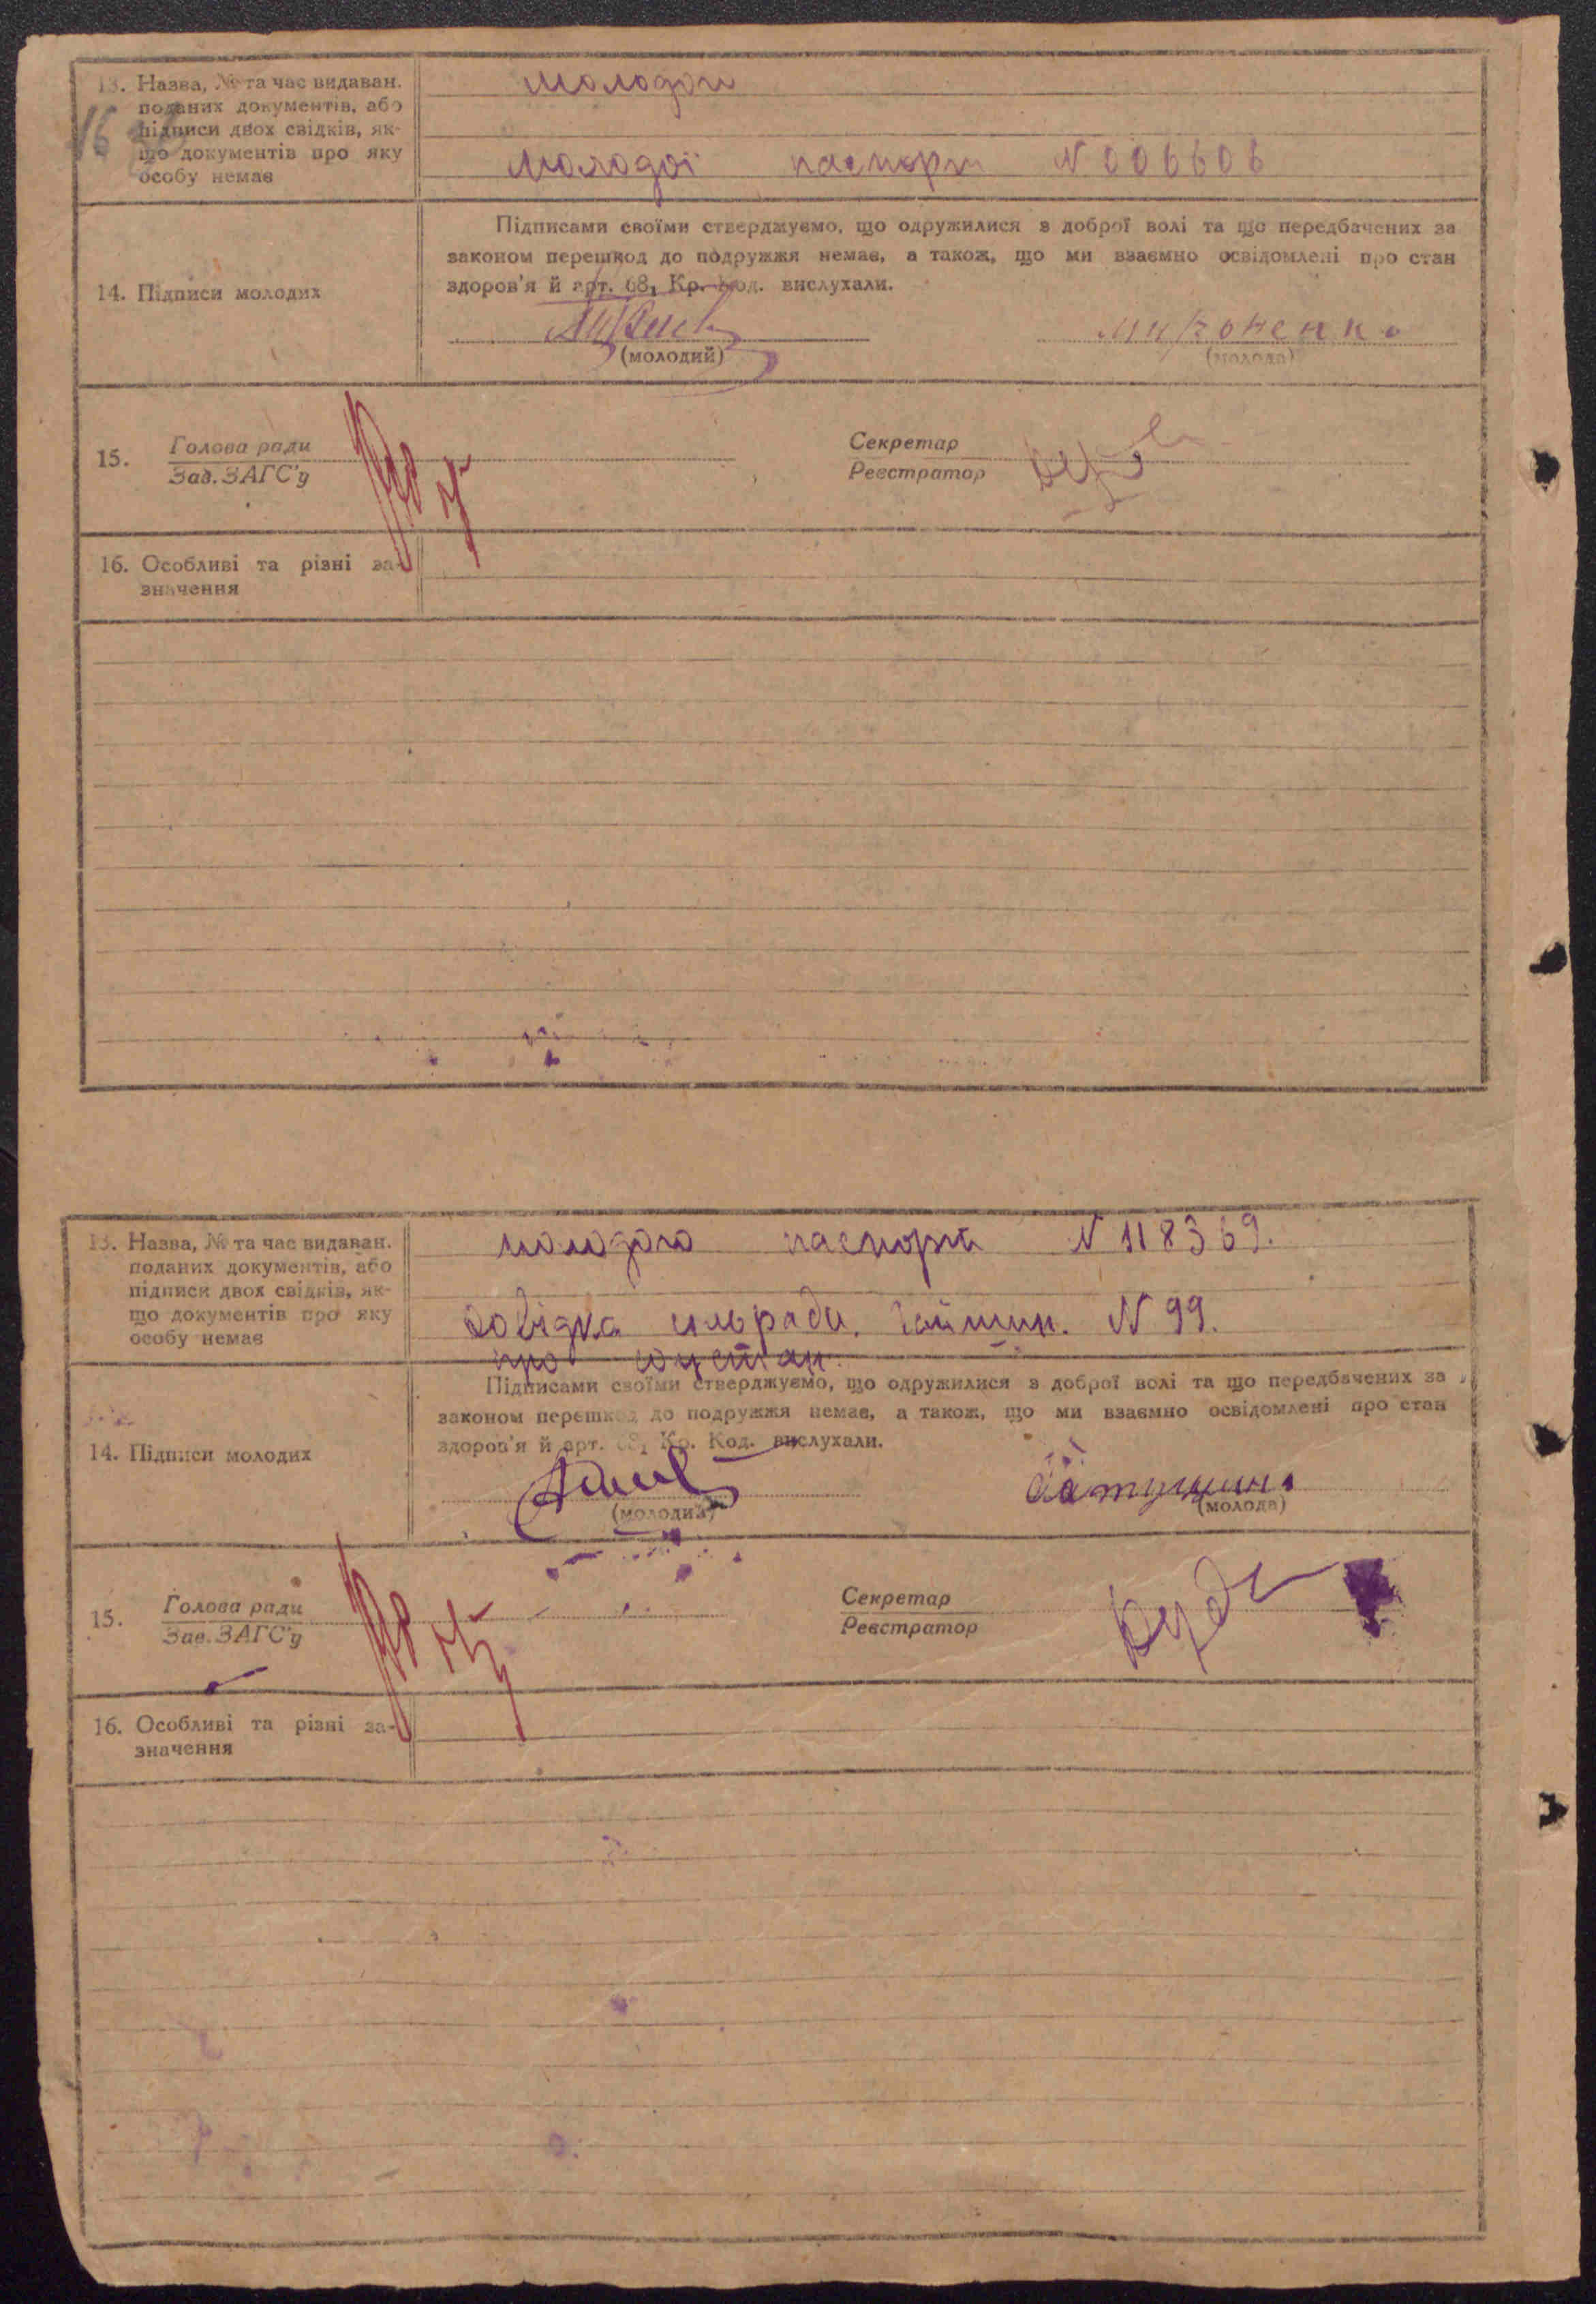 13. Назва, № та час видаван.
поданих документів, або
підписи двох свідків, як-
що документів про яку
особу немає
Молодого
Молодої паспорт № 006606
14. Підписи молодих
Підписами своїми стверджуємо, що одружилися з доброї волі та що передбачених за
законом перешкод до подружжя немає, а також, що ми взаємно освідомлені про стан
здоров'я й арт. 68, Кр. Код. вислухали.
(молодий)
(молода)
15. Голова ради
Зав. ЗАГС'у
Секретар
Реєстратор
16. Особливі та різні за-
значення
13. Назва, № та час видаван.
поданих документів, або
підписи двох свідків, як-
що документів про яку
особу немає
молодого паспорт № 118369.
Довідка сільради. № 99.
про
14. Підписи молодих
Підписами своїми стверджуємо, що одружилися з доброї волі та що передбачених за
законом перешкод до подружжя немає, а також, що ми взаємно освідомлені про стан
здоров'я й арт. 68, Кр. Код. вислухали.
(молодий)
(молода)
15. Голова ради
Зав. ЗАГС'у
Секретар
Реєстратор
16. Особливі та різні за-
значення